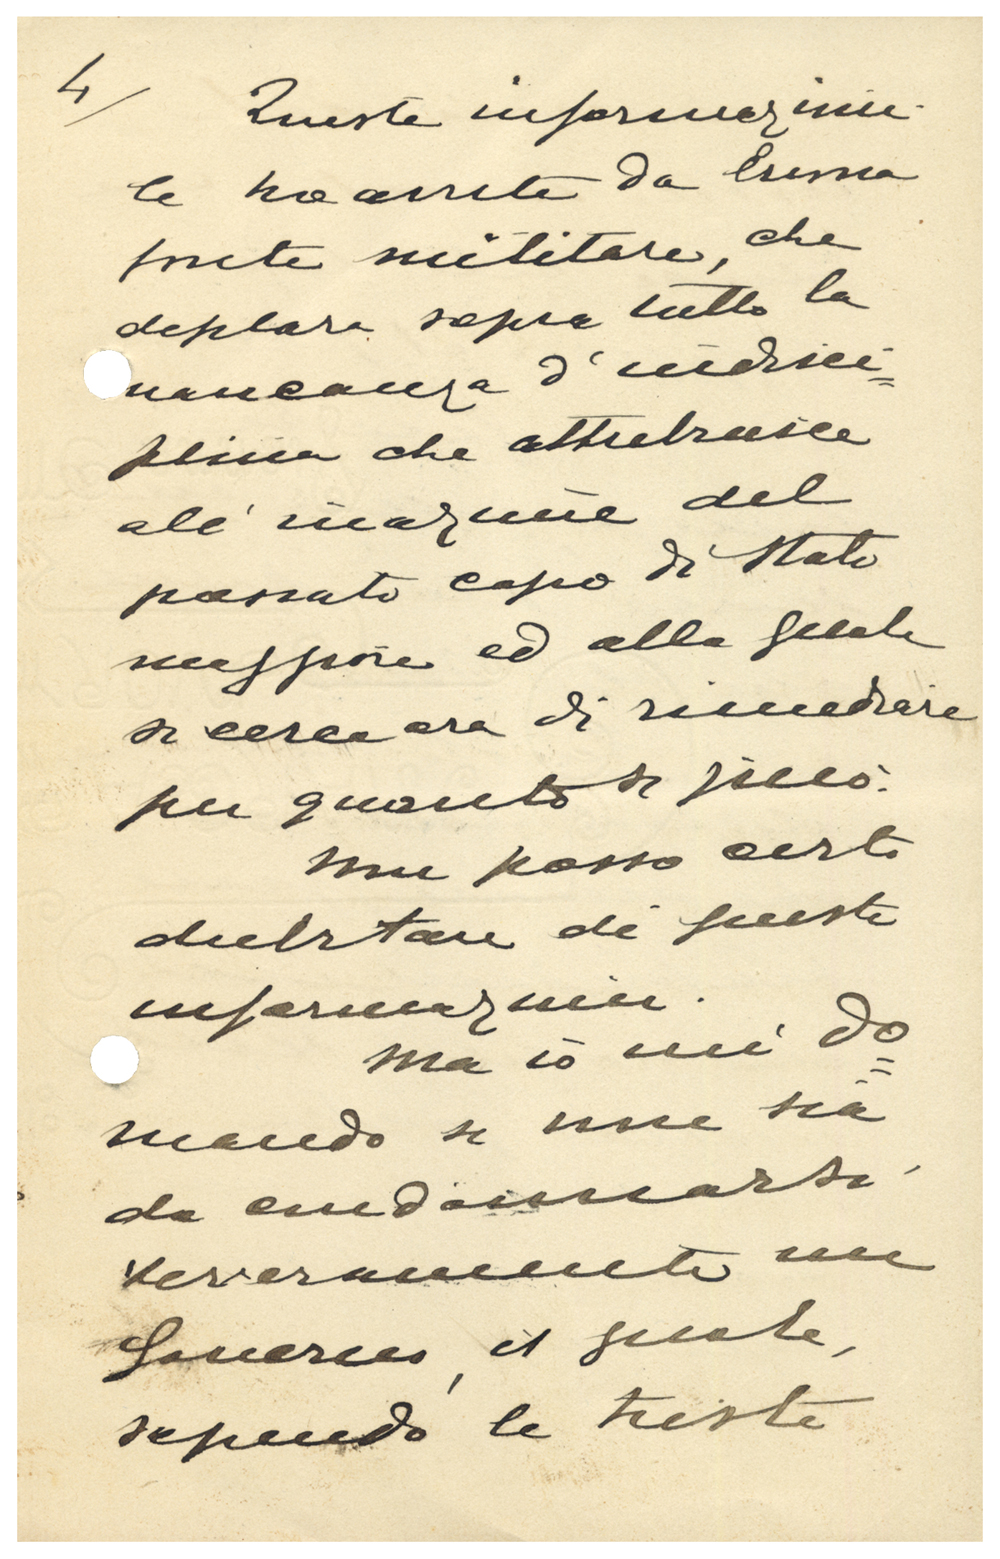 4/
Queste informazioni
le ho avute da buona
fonte militare, che
deplora sopra tutto la
mancanza d'indisci=
plina che attribuisce
all'inazione del
passato capo di Stato
maggiore ed alla quale
si cerca ora di rimediare
per quanto si può.
Non posso certo
dubitare di queste
informazioni.
Ma io mi do=
mando se non sia
da condannarsi
severamente un
Governo, il quale,
sapendo le triste